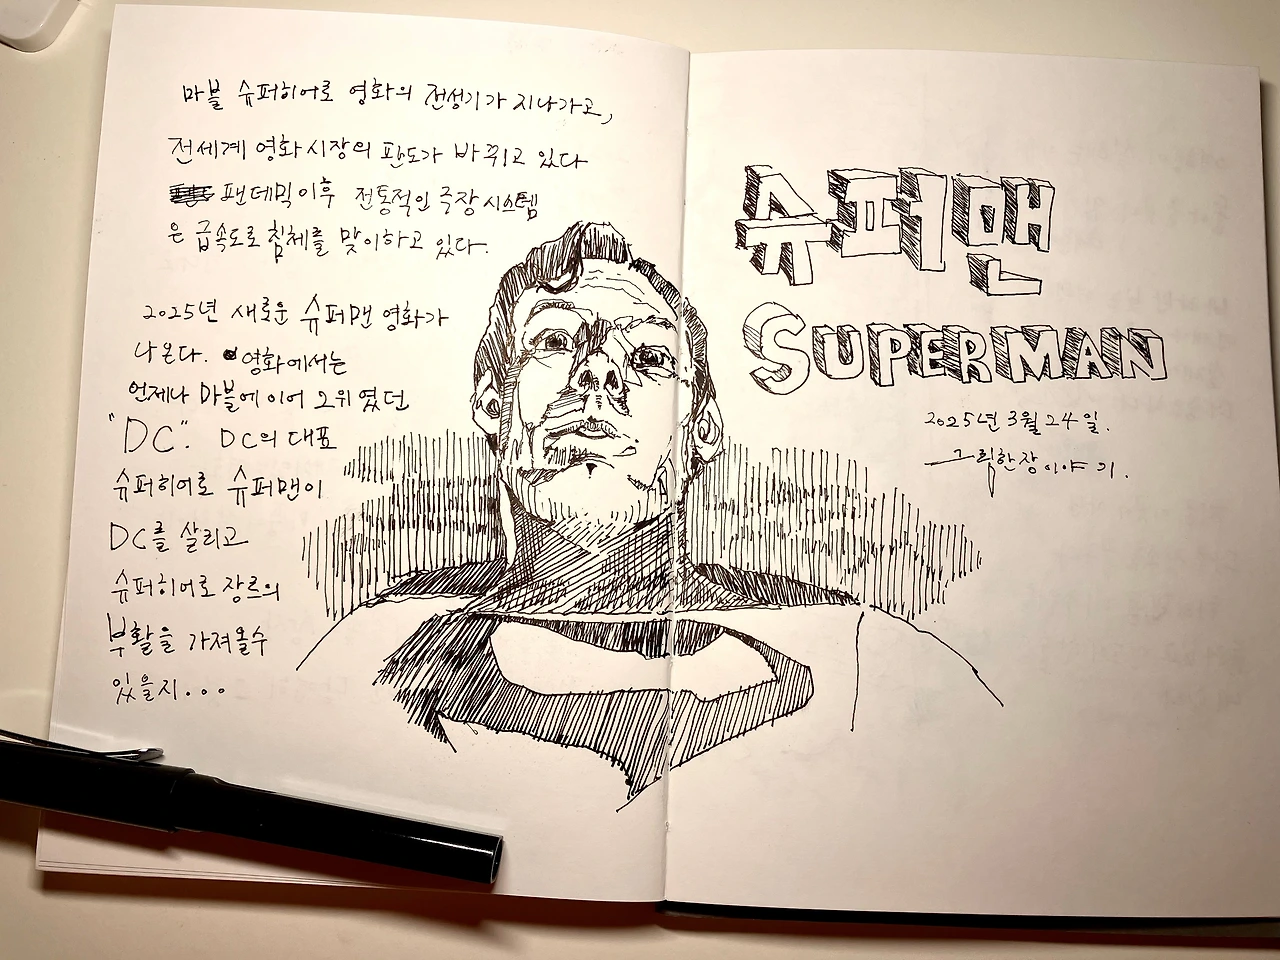 마블 슈퍼히어로 영화의 전성기가 지나가고,
전세계 영화시장의 판도가 바뀌고 있다
팬데믹이후 전통적인 극장시스템
은 급속도로 침체를 맞이하고 있다.
2025년 새로운 슈퍼맨 영화가
나온다. 영화에서는
언제나 마블에 이어 2위였던
"DC". DC의 대표
슈퍼히어로 슈퍼맨이
DC를 살리고
슈퍼히어로 장르의
부활을 가져올수
있을지...
슈퍼맨
SUPERMAN
2025년 3월 24일.
그림한장이야기.